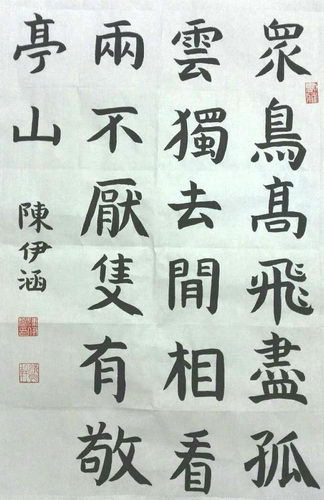 眾鳥髙飛盡孤
雲獨去閒相看
兩不厭隻有敬
亭山
陳伊涵